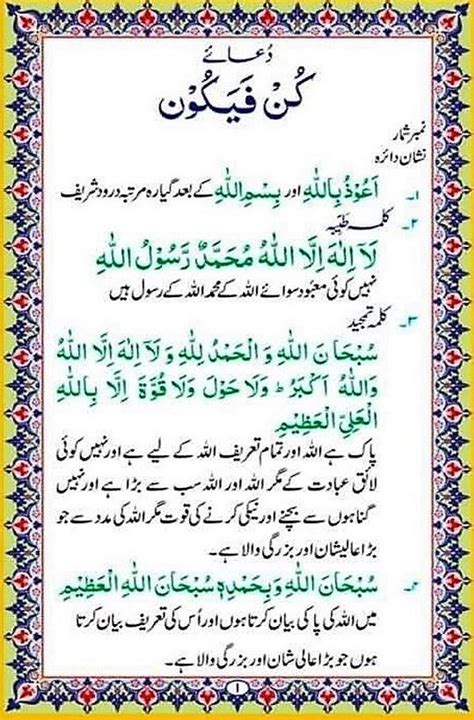 دُعائے
كُنْ فَيَكُوْن
نمبر شمار
نشان دائرہ
۱۔ اَعُوْذُ بِاللّٰهِ اور بِسْمِ اللّٰهِ کے بعد گیارہ مرتبہ درود شریف
۲۔ کلمہ طیّبہ
لَآ اِلٰهَ اِلَّا اللّٰهُ مُحَمَّدٌ رَّسُوْلُ اللّٰهِ
نہیں کوئی معبود سوائے اللہ کے محمد اللہ کے رسول ہیں
۳۔ کلمہ تمجید
سُبْحَانَ اللّٰهِ وَ الْحَمْدُ لِلّٰهِ وَ لَآ اِلٰهَ اِلَّا اللّٰهُ
وَاللّٰهُ اَكْبَرُ ط وَلَا حَوْلَ وَلَا قُوَّةَ اِلَّا بِاللّٰهِ
الْعَلِيِّ الْعَظِيْمِ
پاک ہے اللہ اور تمام تعریف اللہ کے لیے ہے اور نہیں کوئی
لائق عبادت کے مگر اللہ اور اللہ سب سے بڑا ہے اور نہیں
گناہوں سے بچنے اور نیکی کرنے کی قوت مگر اللہ کی مدد سے جو
بڑا عالیشان اور بزرگی والا ہے۔
۴۔ سُبْحَانَ اللّٰهِ وَبِحَمْدِهٖ سُبْحَانَ اللّٰهِ الْعَظِيْمِ
میں اللہ کی پاکی بیان کرتا ہوں اور اُس کی تعریف بیان کرتا
ہوں جو بڑا عالی شان اور بزرگی والا ہے۔
۱